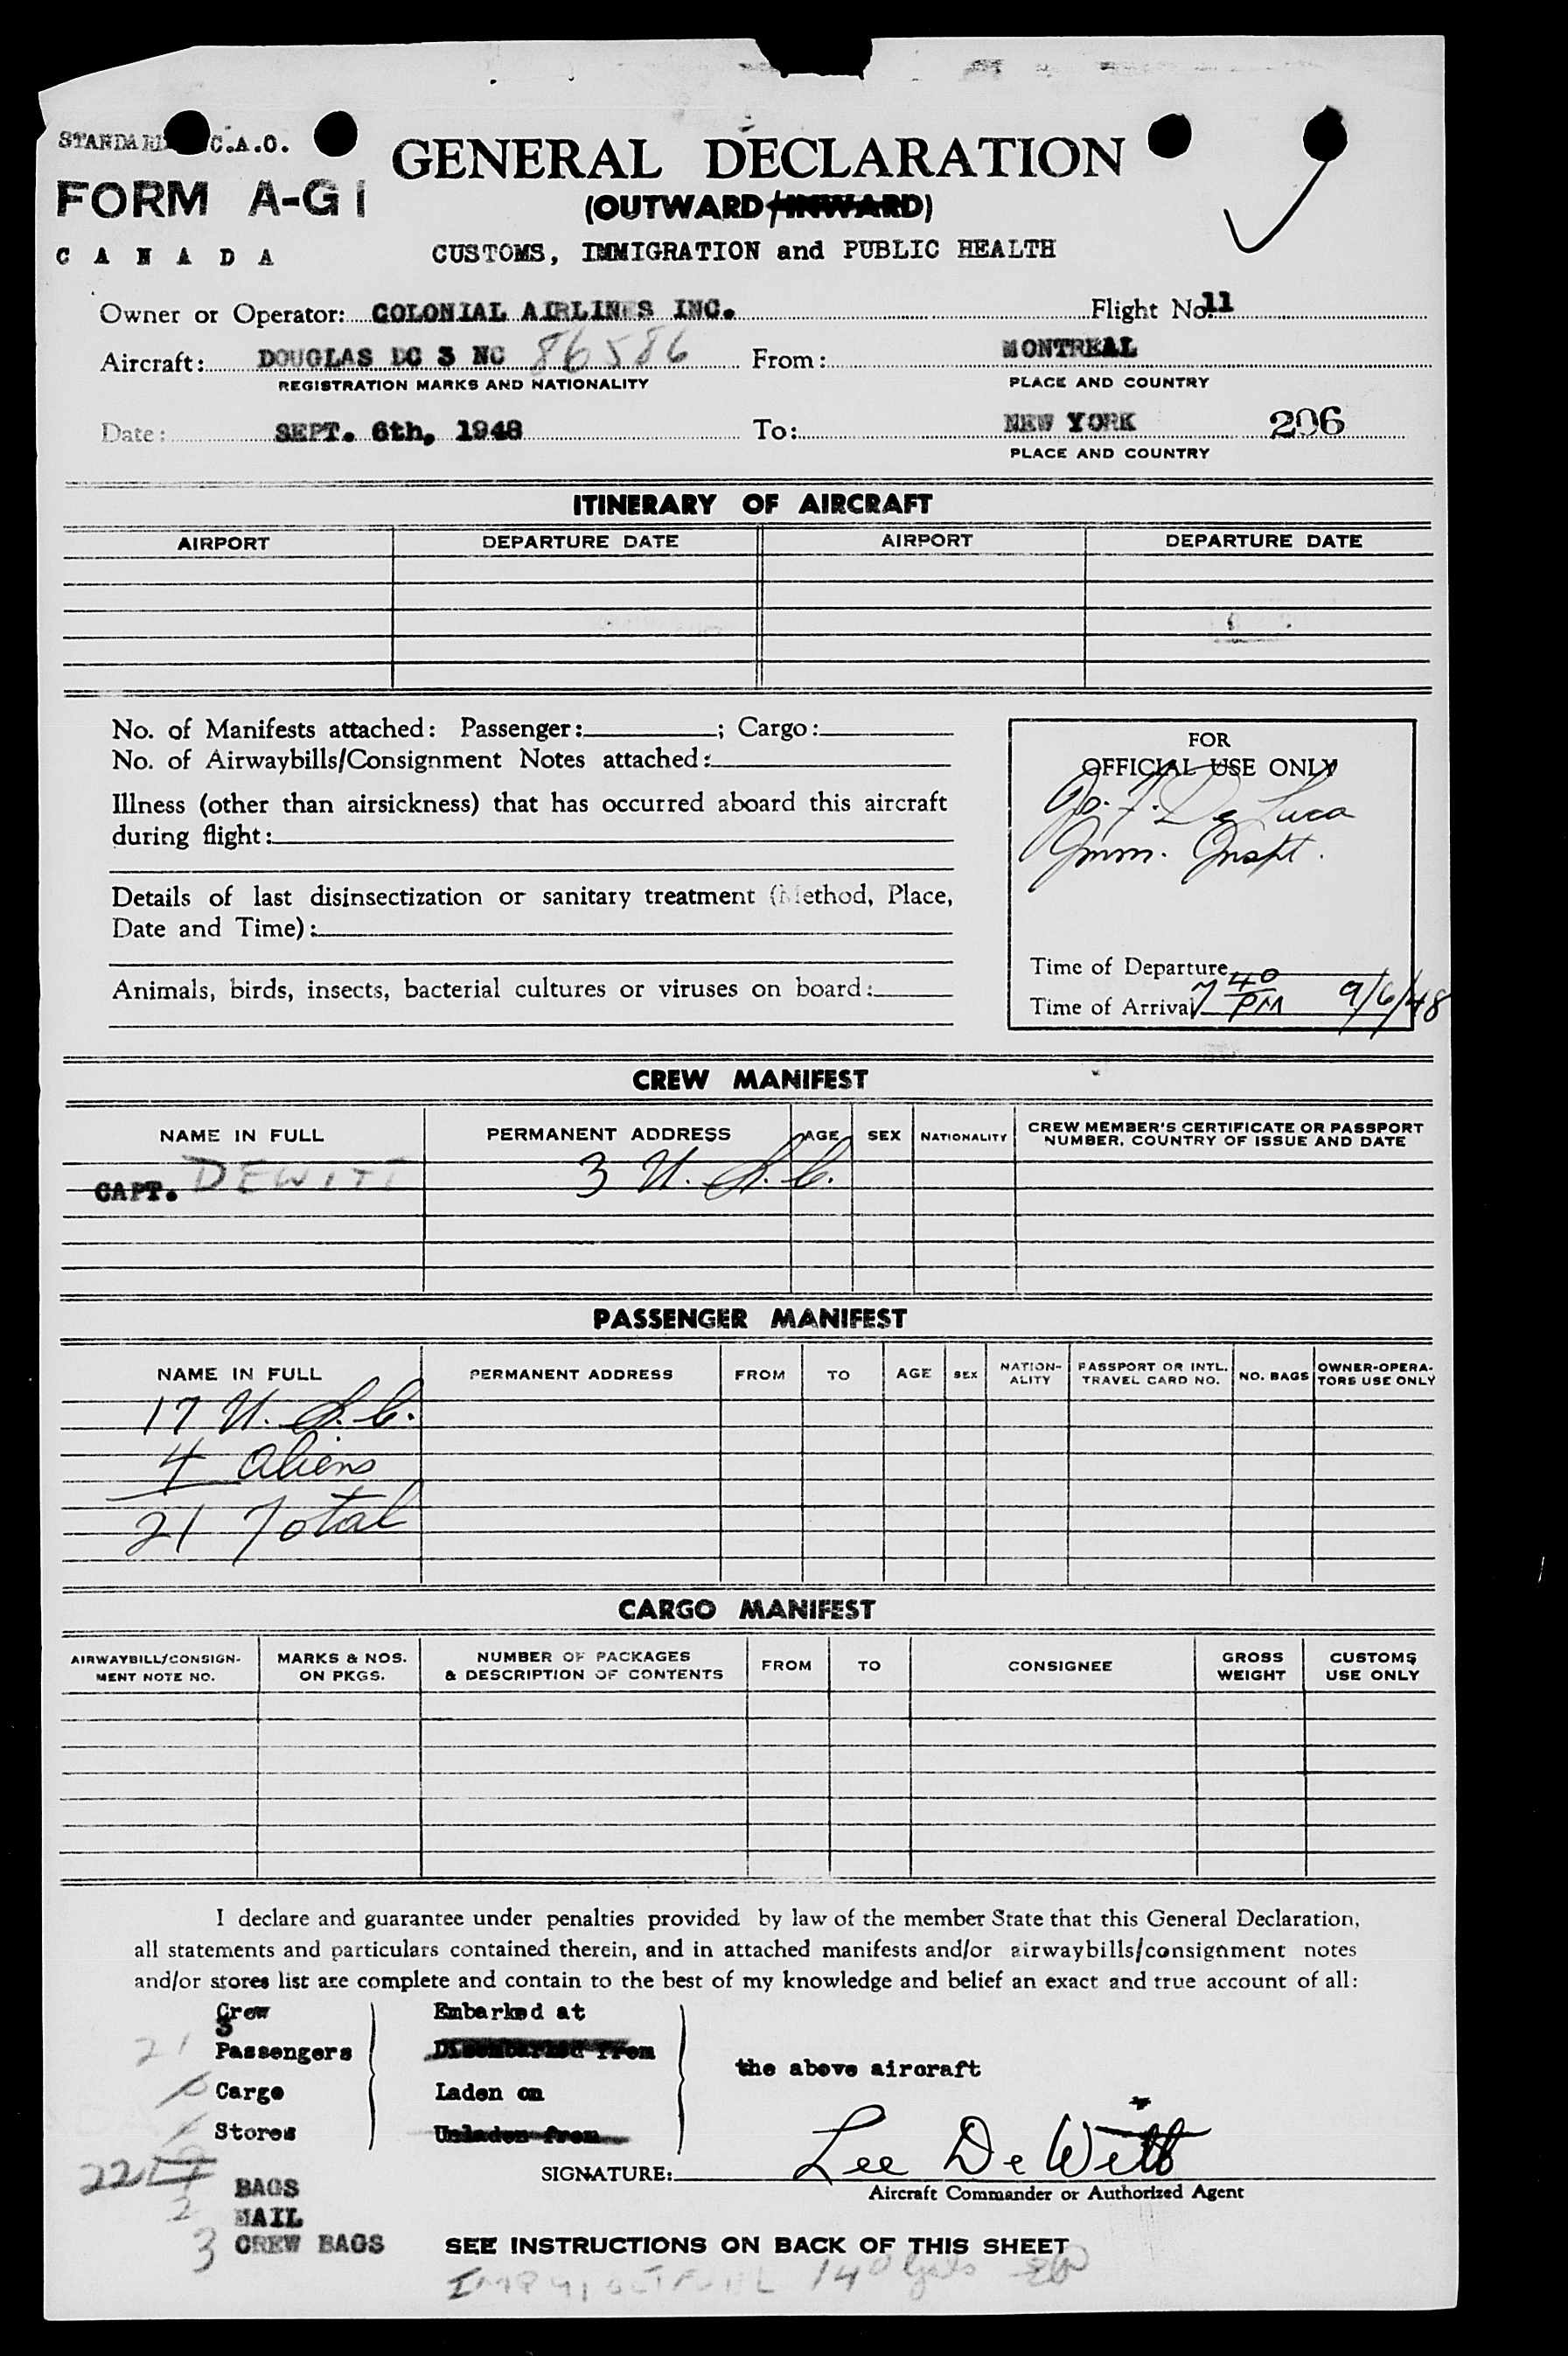 STANDARD I.C.A.O.
FORM A-G1
CANADA
GENERAL DECLARATION
(OUTWARD/INWARD)
CUSTOMS, IMMIGRATION and PUBLIC HEALTH
Owner or Operator: COLONIAL AIRLINES INC. Flight No. 11
Aircraft: DOUGLAS DC 3 NC 86586 From: MONTREAL
REGISTRATION MARKS AND NATIONALITY PLACE AND COUNTRY
Date: SEPT. 6th, 1948 To: NEW YORK 206
PLACE AND COUNTRY
ITINERARY OF AIRCRAFT
AIRPORT DEPARTURE DATE AIRPORT DEPARTURE DATE
No. of Manifests attached: Passenger: ; Cargo:
No. of Airwaybills/Consignment Notes attached:
Illness (other than airsickness) that has occurred aboard this aircraft
during flight:
Details of last disinsectization or sanitary treatment (Method, Place,
Date and Time):
Animals, birds, insects, bacterial cultures or viruses on board:
FOR
OFFICIAL USE ONLY
Jo. F. De Luca
Imm. Inspt.
Time of Departure
Time of Arrival 7 40 PM 9/6/48
CREW MANIFEST
NAME IN FULL PERMANENT ADDRESS AGE SEX NATIONALITY CREW MEMBER'S CERTIFICATE OR PASSPORT NUMBER, COUNTRY OF ISSUE AND DATE
CAPT. DEWITT 3 U.S.C.
PASSENGER MANIFEST
NAME IN FULL PERMANENT ADDRESS FROM TO AGE SEX NATION-ALITY PASSPORT OR INTL. TRAVEL CARD NO. NO. BAGS OWNER-OPERA-TORS USE ONLY
17 U.S.C.
4 Aliens
21 Total
CARGO MANIFEST
AIRWAYBILL/CONSIGN-MENT NOTE NO. MARKS & NOS. ON PKGS. NUMBER OF PACKAGES & DESCRIPTION OF CONTENTS FROM TO CONSIGNEE GROSS WEIGHT CUSTOMS USE ONLY
I declare and guarantee under penalties provided by law of the member State that this General Declaration,
all statements and particulars contained therein, and in attached manifests and/or airwaybills/consignment notes
and/or stores list are complete and contain to the best of my knowledge and belief an exact and true account of all:
Crew Embarked at
3
21 Passengers Disembarked from
the above aircraft
Cargo Laden on
Stores Unladen from
Lee DeWitt
SIGNATURE:
Aircraft Commander or Authorized Agent
22 BAGS
2 MAIL
3 CREW BAGS SEE INSTRUCTIONS ON BACK OF THIS SHEET
140 gals